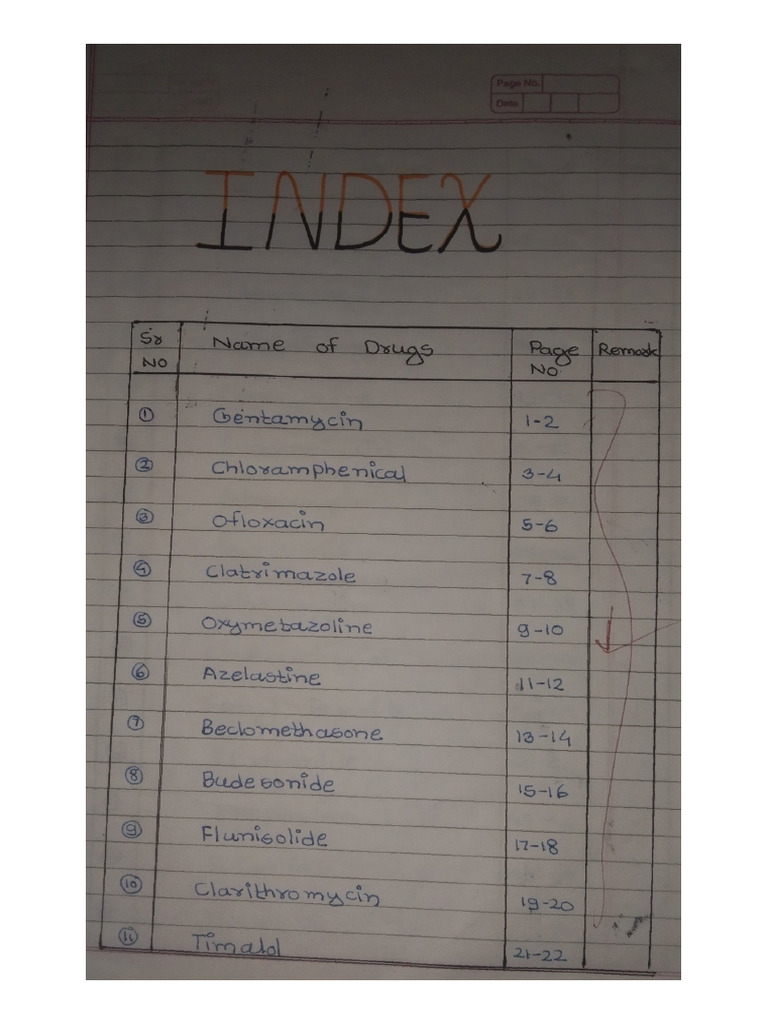 Page No.
Date
INDEX
Sr No Name of Drugs Page No. Remark
1 Gentamycin 1-2
2 Chloramphenical 3-4
3 Ofloxacin 5-6
4 Clatrimazole 7-8
5 Oxymetazoline 9-10
6 Azelastine 11-12
7 Beclomethasone 13-14
8 Budesonide 15-16
9 Flunisolide 17-18
10 Clarithromycin 19-20
11 Timalol 21-22